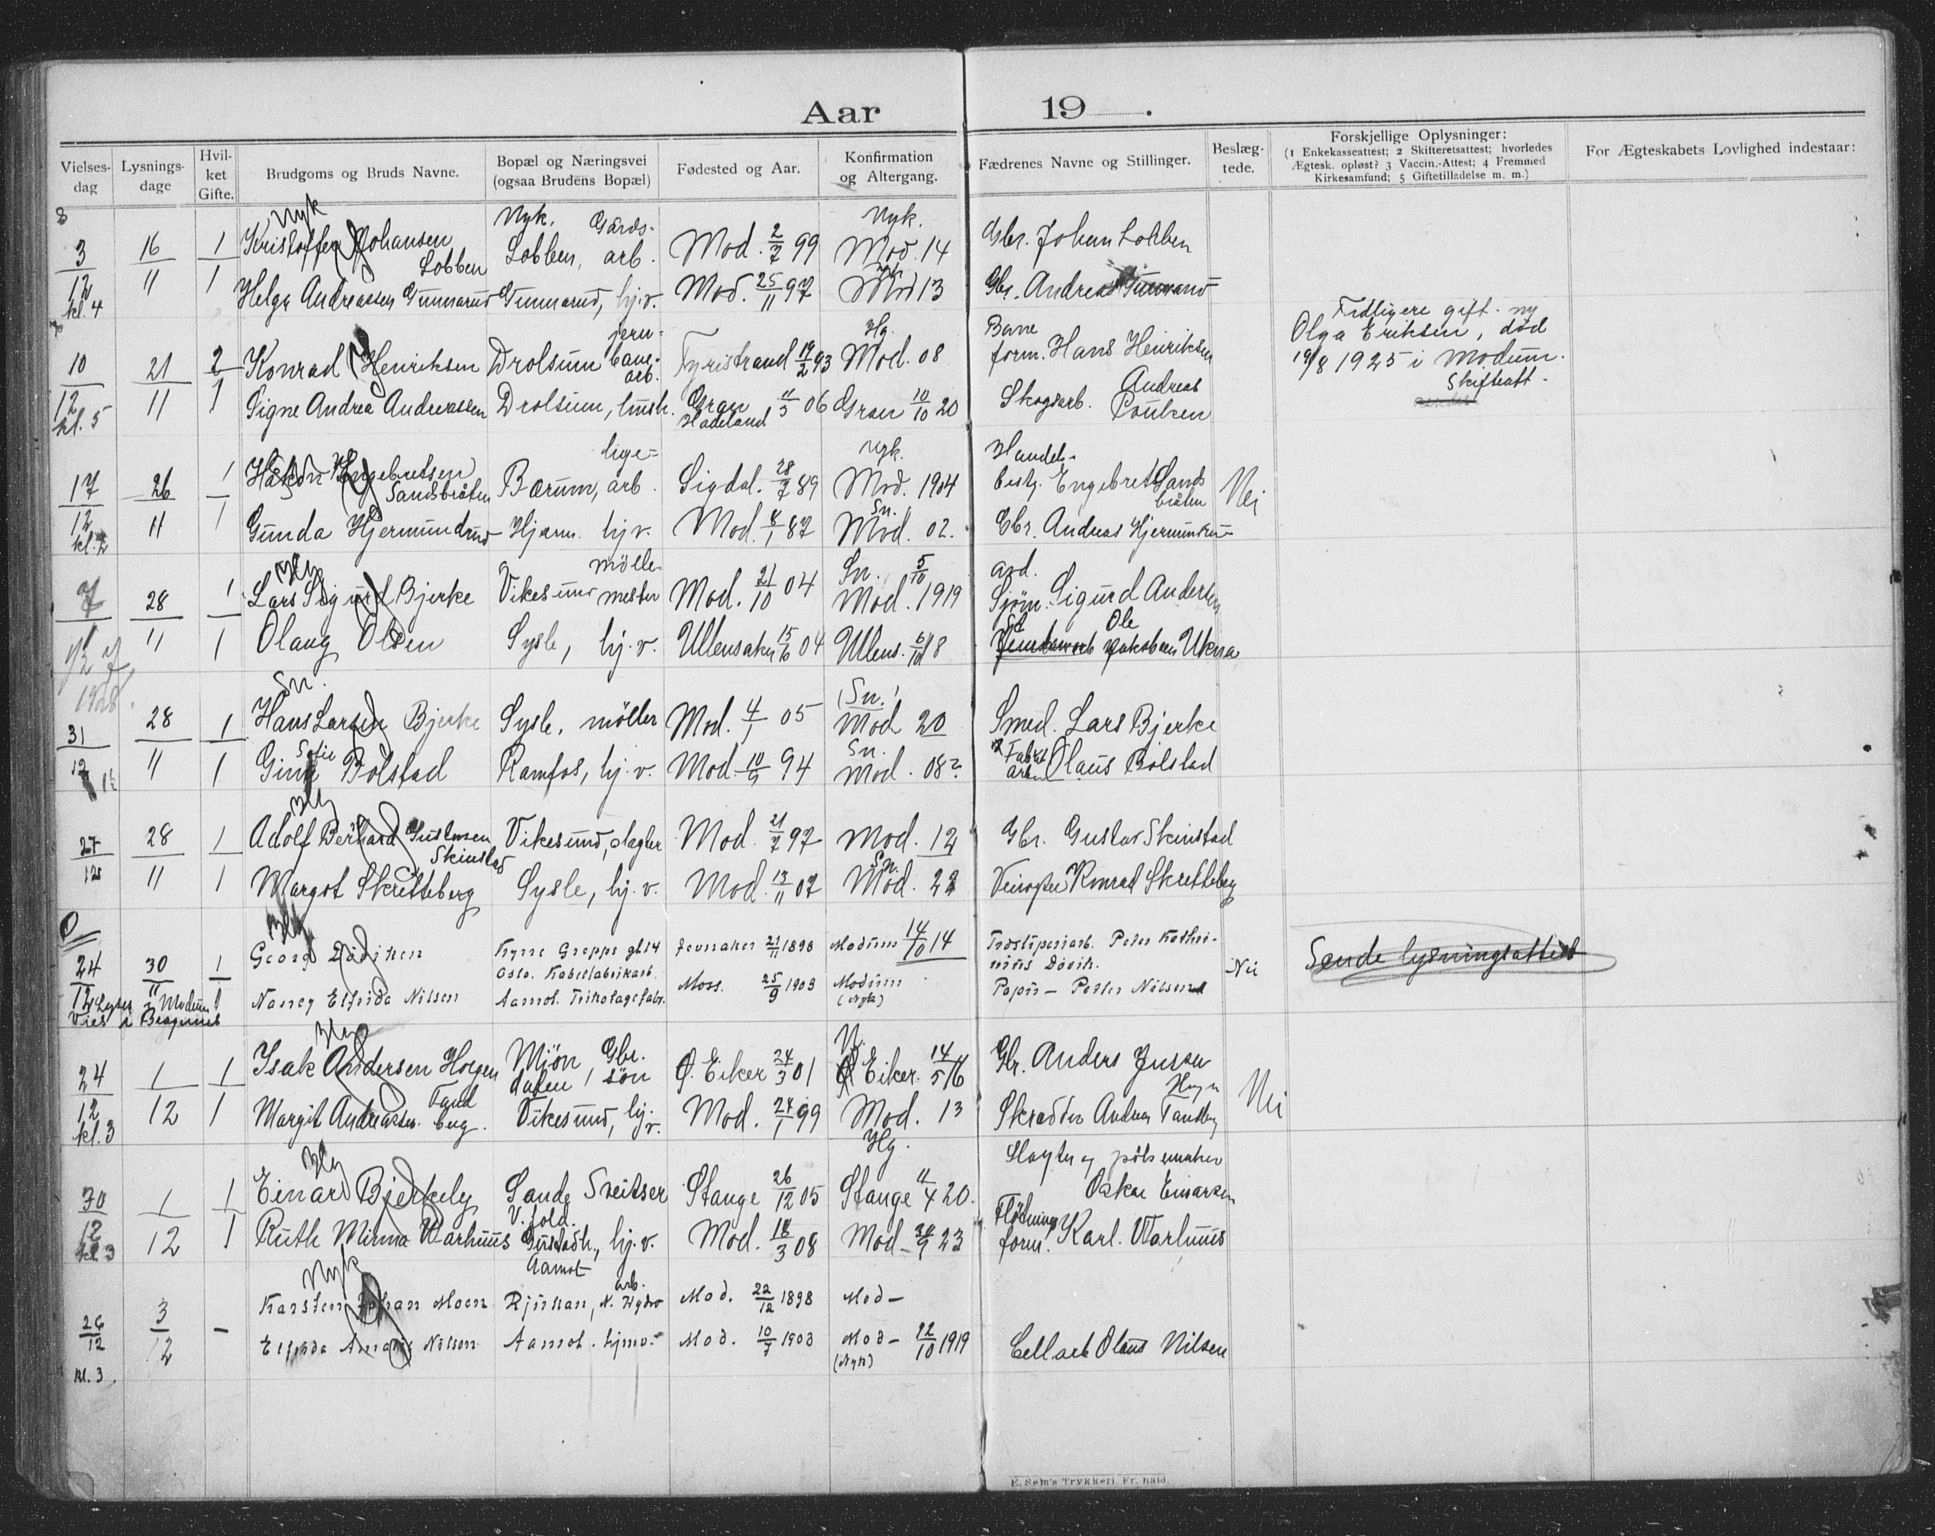 Aar 19 .
Vielses-dag
Lysnings-dage
Hvil-ket Gifte.
Brudgoms og Bruds Navne.
Bopæl og Næringsvei (ogsaa Brudens Bopæl)
Fødested og Aar.
Konfirmation og Altergang.
Fædrenes Navne og Stillinger.
Beslæg-tede.
Forskjellige Oplysninger:
(1 Enkekasseattest; 2 Skifteretsattest; hvorledes
Ægtesk. opløst? 3 Vaccin.-Attest; 4 Fremmed
Kirkesamfund; 5 Giftetilladelse m. m.)
For Ægteskabets Lovlighed indestaar:
Nyk Nyk. Gårds- Nyk.
3/12 kl. 4 16/11 1 Kristoffer Johansen Lobben Lobben, arb. Mod. 2/7 99 Mod. 14 Gbr. Johan Lobben
1 Helga Andreassen Gunnarud Gunnarud, hj.v. Mod. 25/11 97 Mod 13 Gbr. Andreas Gunnarud
10/12 kl. 5 21/11 2 Konrad Henriksen Drolsum bane-arb. Tyristrand 14/2 93 Hg. Mod. 08 Bane form. Hans Henriksen
Tidligere gift
Olga Eriksen, død
19/8 1925 i Modum.
Skifteatt.
1 Signe Andrea Andreassen Drolsum, hush. Gran Hadeland 06 Gran 10/10 20 Skogsarb. Andreas Poulsen
17/12 kl. 2 26/11 1 Håkon Engebretsen Sandbråten Bærum, arb. Sigdal. 28/7 89 Nyk. Mod. 1904 Handels-best. Engebret Sandbråten Nei
1 Gunda Hjermundrud Hjerm. hj.v. Mod. 8/1 87 Sn. Mod. 02. Gbr. Andreas Hjermundru-
7/1 1928. 28/11 1 Hg Lars Sigurd Bjerke Vikesund mølle-mester Mod. 21/10 04 Sn. Mod. 5/10 1919 Sjøm. Sigurd Andersen
1 Olaug Olsen Sysle, hj.v. Ullensaker 15/6 04 Ullens. 6/10 18 Ole Jakobsen Ukna
31/12 28/11 1 Sn. Hans Larsen Bjerke Sysle, møller Mod. 4/1 05 (Sn.) Mod 20 Smed. Lars Bjerke
1 Gina Sofie Bolstad Ramfos, hj.v. Mod 10/9 94 Sn. Mod. 08? Fabr. arb. Olaus Bolstad
27/12 28/11 1 Hg Adolf Bernhard Gustavsen Skinstad Vikesund, slagter Mod. 21/7 97 Mod. 12 Gbr. Gustav Skinstad
1 Margot Skretteberg Sysle, hj.v. Mod. 13/11 07 Sn. Mod. 22 Konrad Skretteberg
24/12 30/11 1 Hg Georg Oslo. Kabelfabrikarb. Jevnaker 21/11 1898 Modum 14/10 14 Træsliperiarb. Peter Nei Sende lysningsattest
Lyses i Modum
Vies i Bragernes
1 Nancy Elfrida Nilsen Aamot. Trikotagefabr. Moss. 25/9 1903 Modum (Nyk) Papir- Petter Nilsen
24/12 kl. 3 1/12 1 Hg Isak Andersen Horgen Gbr. søn Ø. Eiker 24/3 01 Ø Eiker. 14/5 16 Gbr. Anders Jensen Nei
1 Margit Andreassen Tandberg Vikesund, hj.v. Mod. 24/1 99 Mod. 13 Skrædder Andreas Tandberg
30/12 kl. 3 1/12 1 Hg Einar Bjerkely Sande V. fold. Sveitser Stange 26/12 05 Hg. Stange 20. Slagter og pølsemaker Oskar Einarsen
1 Ruth Minna Warhuus Aamot hj.v. Mod. 18/3 08 Mod. 23 Fløtnings form. Karl. Warhuus
26/12 kl. 3 3/12 - Nyk Karsten Johan Moen Rjukan, N. Hydro arb. Mod. 22/12 1898 Mod-
Elfrida Amanda Nilsen Aamot. hjmv. Mod. 10/7 1903 Mod- (Nyk) 12/10 1919 Cell arb Olaus Nilsen
E. Sem's Trykkeri Fr.hald.